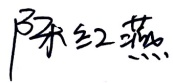 陈红燕